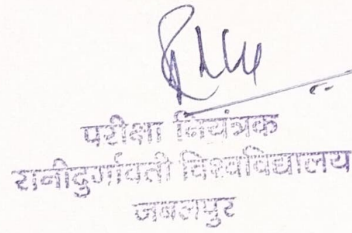 परीक्षा नियंत्रक
रानीदुर्गावती विश्वविद्यालय
जबलपुर